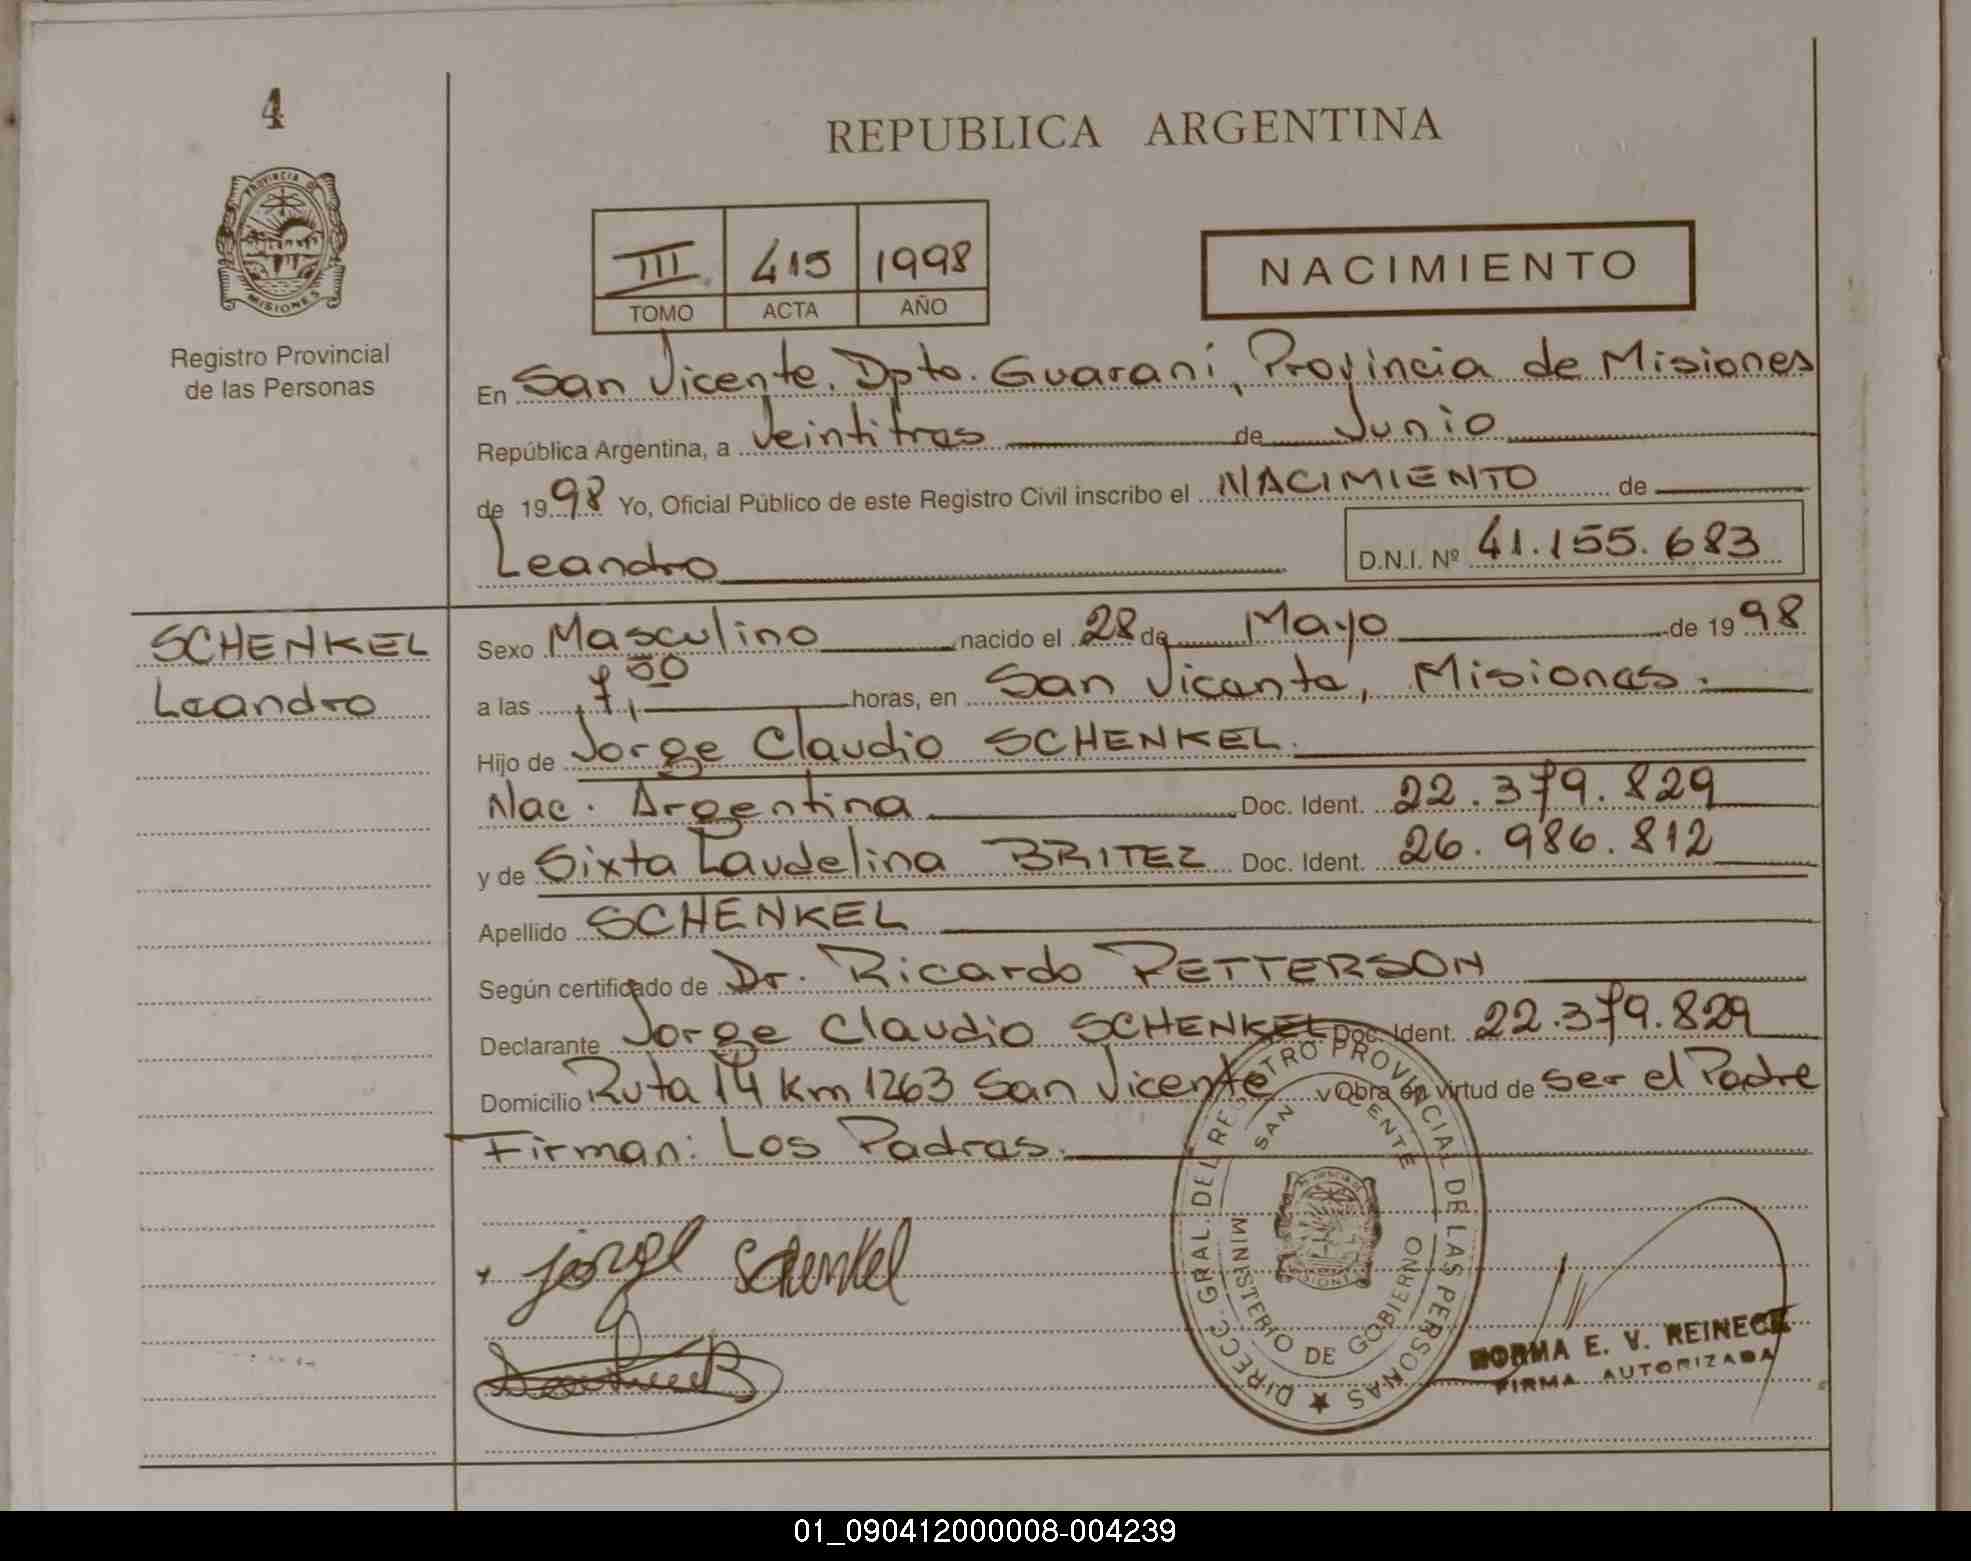 4
PROVINCIA DE
MISIONES
Registro Provincial
de las Personas
REPUBLICA ARGENTINA
III 415 1998
TOMO ACTA AÑO
NACIMIENTO
En San Vicente. Dpto. Guaraní, Provincia de Misiones
República Argentina, a Veintitres de Junio
de 1998 Yo, Oficial Público de este Registro Civil inscribo el NACIMIENTO de
Leandro
D.N.I. Nº 41.155.683
SCHENKEL
Leandro
Sexo Masculino nacido el 28 de Mayo de 1998
a las 7,50 horas, en San Vicente, Misiones.
Hijo de Jorge Claudio SCHENKEL.
Nac. Argentina Doc. Ident. 22.379.829
y de Sixta Laudelina BRITEZ Doc. Ident. 26.986.812
Apellido SCHENKEL
Según certificado de Dr. Ricardo PETTERSON
Declarante Jorge Claudio SCHENKEL Doc. Ident. 22.379.829
Domicilio Ruta 14 Km 1263 San Vicente y Obra en virtud de ser el Padre
Firman: Los Padres.
Jorge Schenkel
DIRECC. GRAL. DEL REGISTRO PROVINCIAL DE LAS PERSONAS
SAN VICENTE
MINISTERIO DE GOBIERNO
NORMA E. V. REINECK
FIRMA AUTORIZADA
01_090412000008-004239